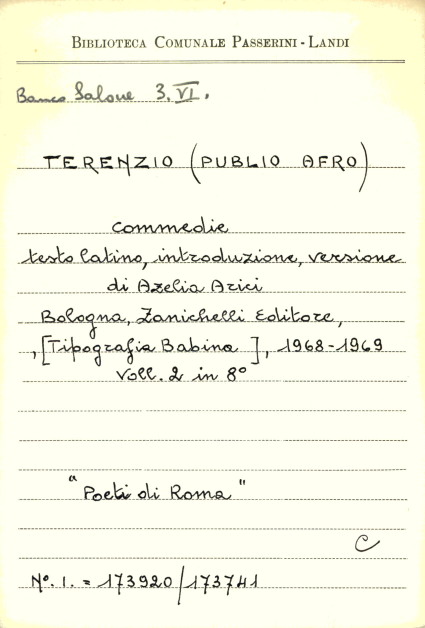 BIBLIOTECA COMUNALE PASSERINI - LANDI
Banco Salone 3. VI.
TERENZIO (PUBLIO AFRO)
Commedie
testo latino, introduzione, versione
di Azelia Arici
Bologna, Zanichelli Editore,
, [Tipografia Babina], 1968-1969
Voll. 2 in 8°
"Poeti di Roma"
C
N°. I. = 173920/173741